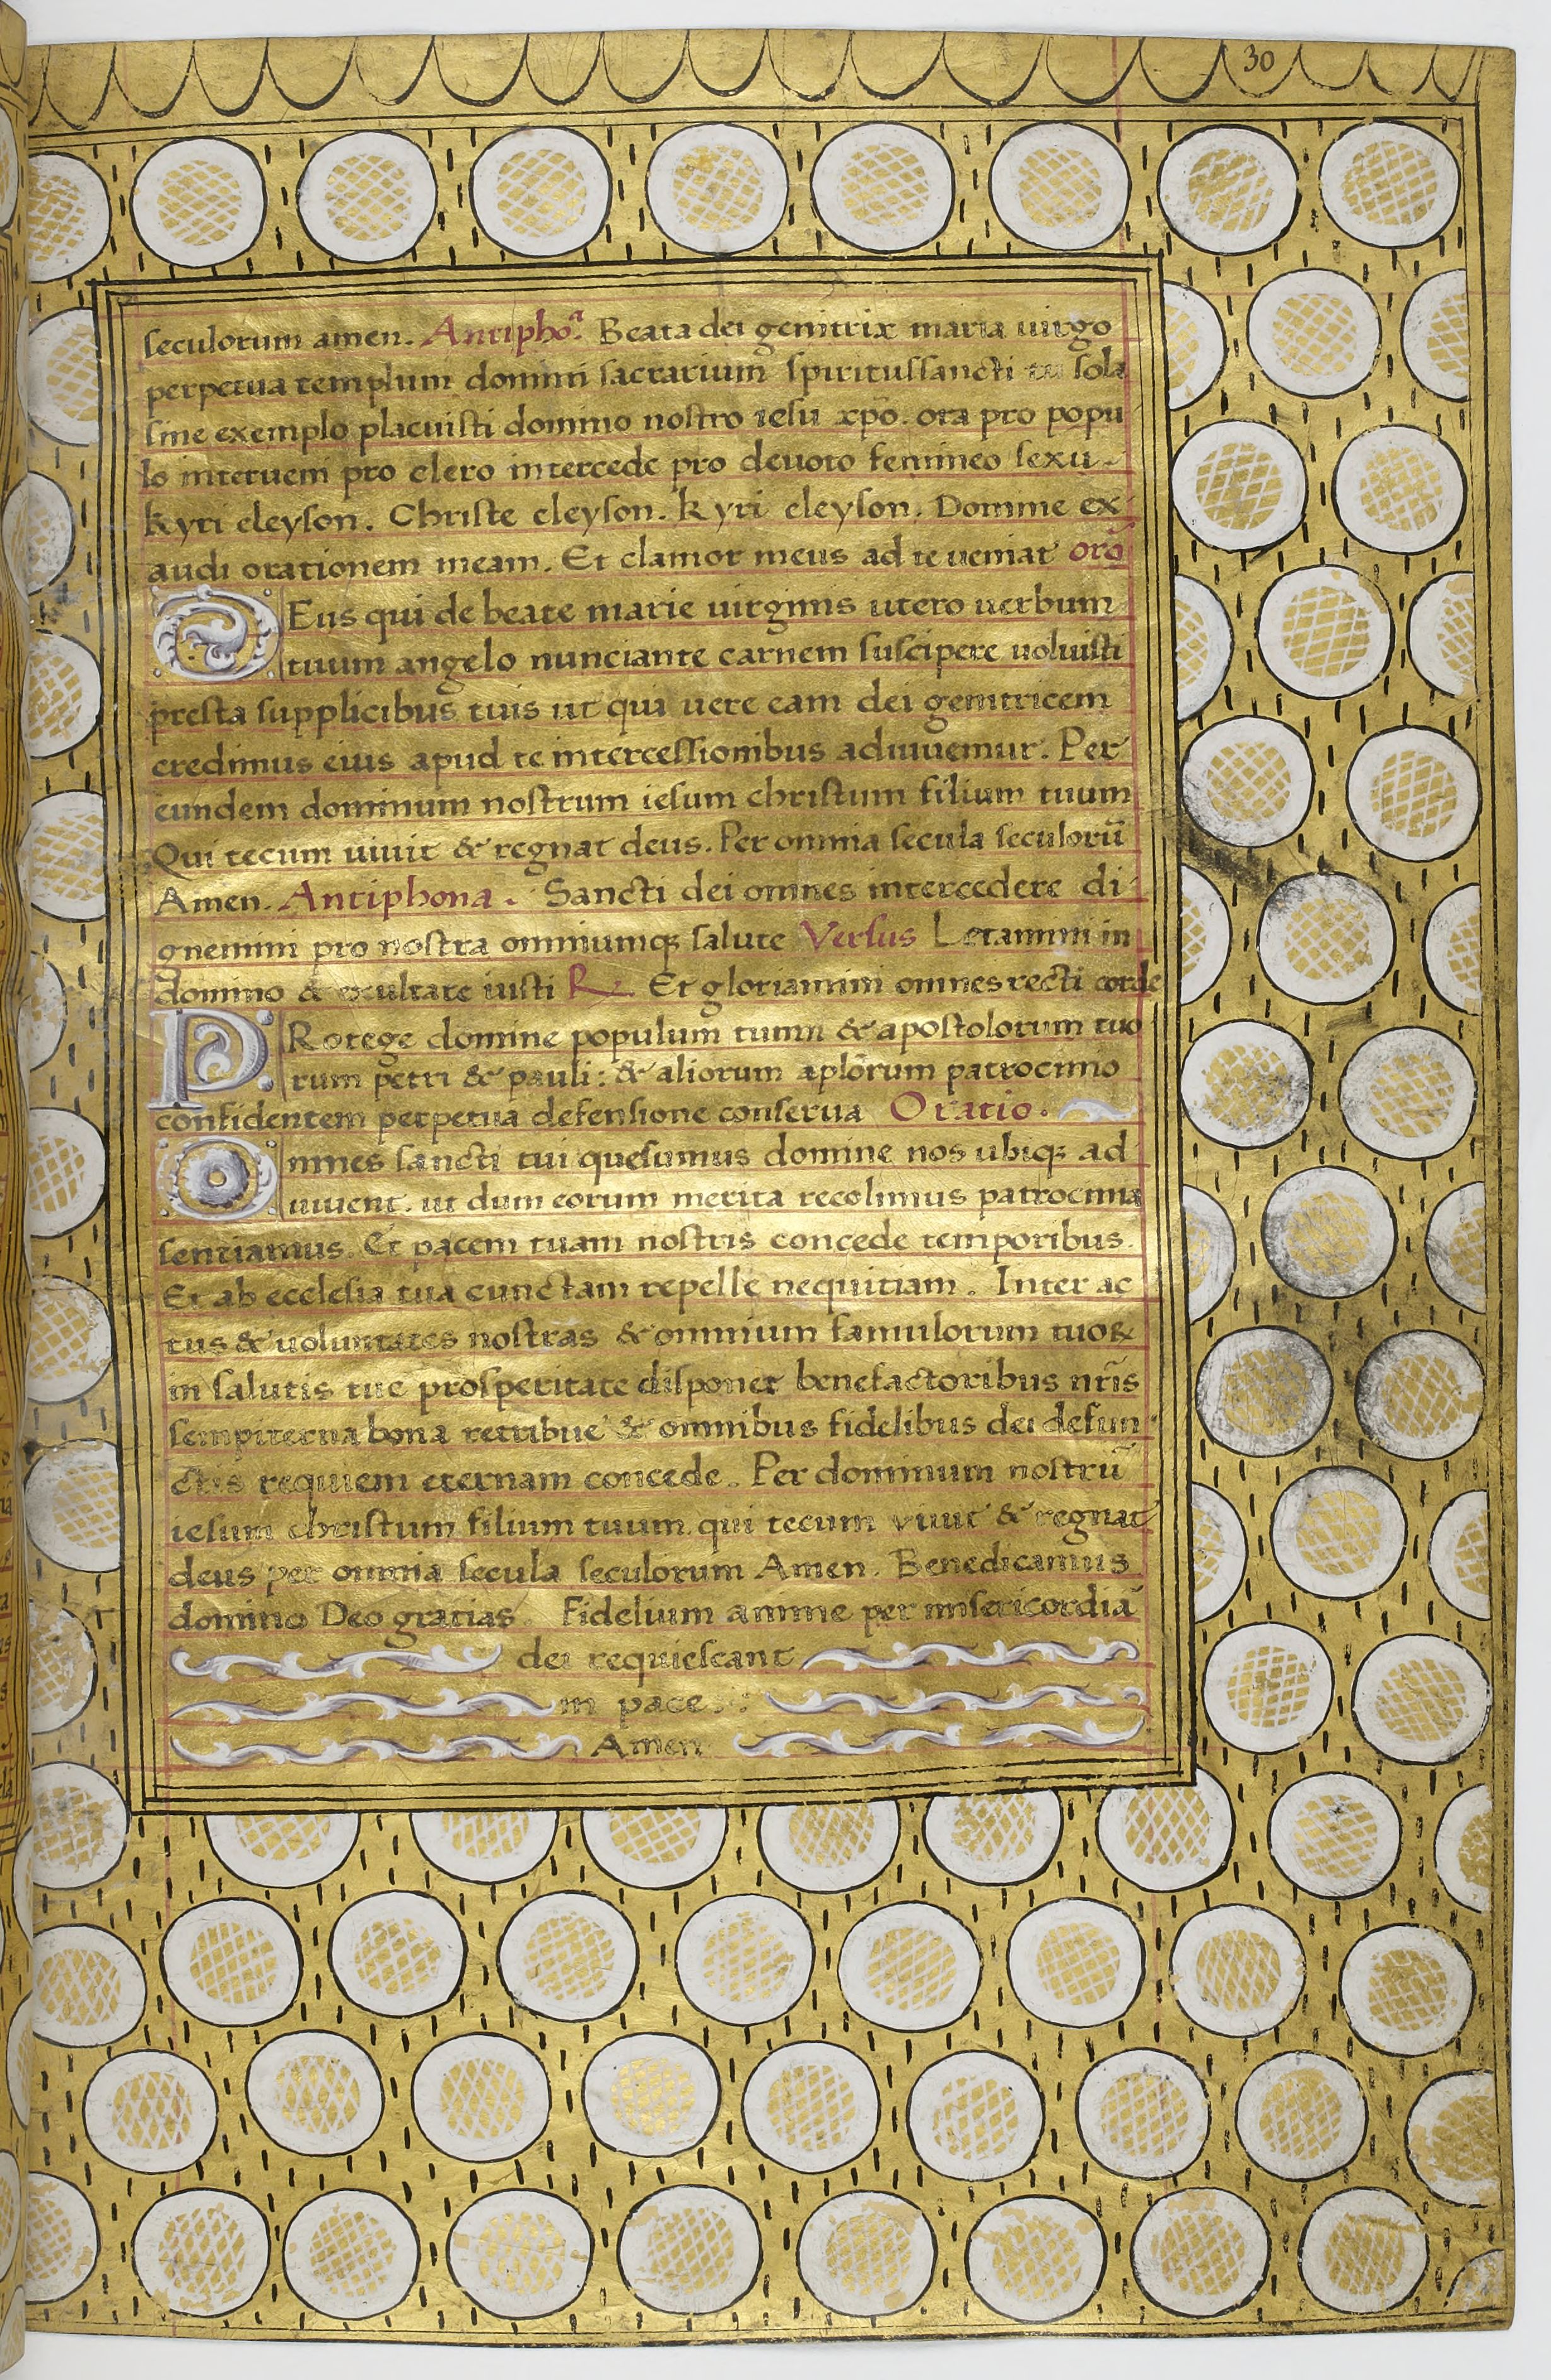 30
seculorum amen. Antipho.ª Beata dei genitrix maria uirgo
perpetua templum domini sacrarium spiritussancti tu sola
sine exemplo placuisti domino nostro iesu xp̃o. ora pro popu
lo interueni pro clero intercede pro deuoto femineo sexu.
kyri eleyson. Christe eleyson. kyri eleyson. Domine ex
audi orationem meam. Et clamor meus ad te ueniat orõ
DEus qui de beate marie uirginis utero uerbum
tuum angelo nunciante carnem suscipere uoluisti
presta supplicibus tuis ut qui uere eam dei genitricem
credimus eius apud te intercessionibus adiuuemur. Per
eundem dominum nostrum iesum christum filium tuum
Qui tecum uiuit & regnat deus. Per omnia secula seculorũ
Amen. Antiphona. Sancti dei omnes intercedere di
gnemini pro nostra omniumq; salute Versus Letamini in
domino & exultate iusti ℟ Et gloriamini omnes recti corde
PRotege domine populum tuum & apostolorum tuo
rum petri & pauli: & aliorum aplõrum patrocinio
confidentem perpetua defensione conserua Oratio.
Omnes sancti tui quesumus domine nos ubiq; ad
iuuent. ut dum eorum merita recolimus patrocinia
sentiamus. Et pacem tuam nostris concede temporibus.
Et ab ecclesia tua cunctam repelle nequitiam. Inter ac
tus & uoluntates nostras & omnium famulorum tuoꝝ
in salutis tue prosperitate disponet benefactoribus nr̃is
sempiterna bona retribue & omnibus fidelibus dei defun
ctis requiem eternam concede. Per dominum nostrũ
iesum christum filium tuum. qui tecum viuit & regnat
deus per omnia secula seculorum Amen. Benedicamus
domino Deo gratias. Fidelium anime per misericordiã
dei requiescant
in pace.:
Amen